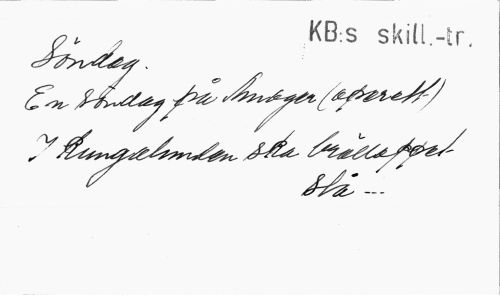 KB:s skill.-tr.
Söndag.
En söndag på Amager (operett)
I Kungalunden ska brölloppet
stå ---